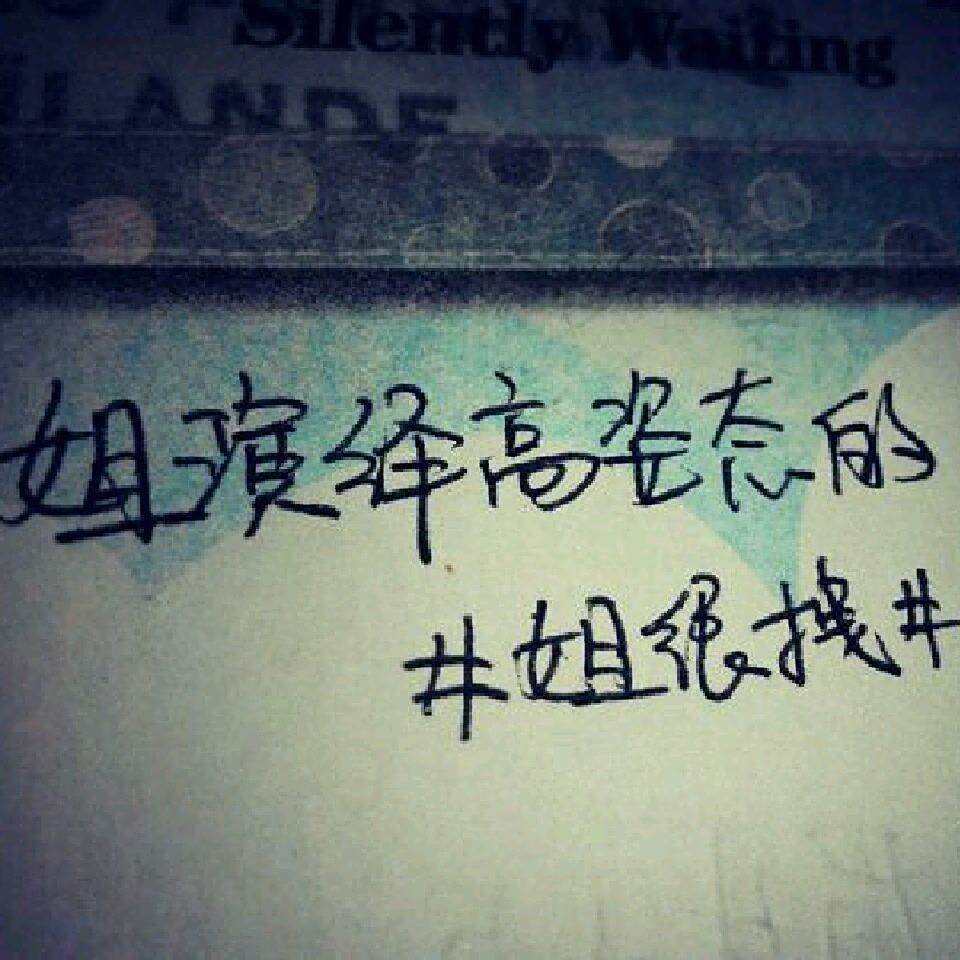 Silently Waiting
LANDE
姐演绎高姿态的
#姐很拽#